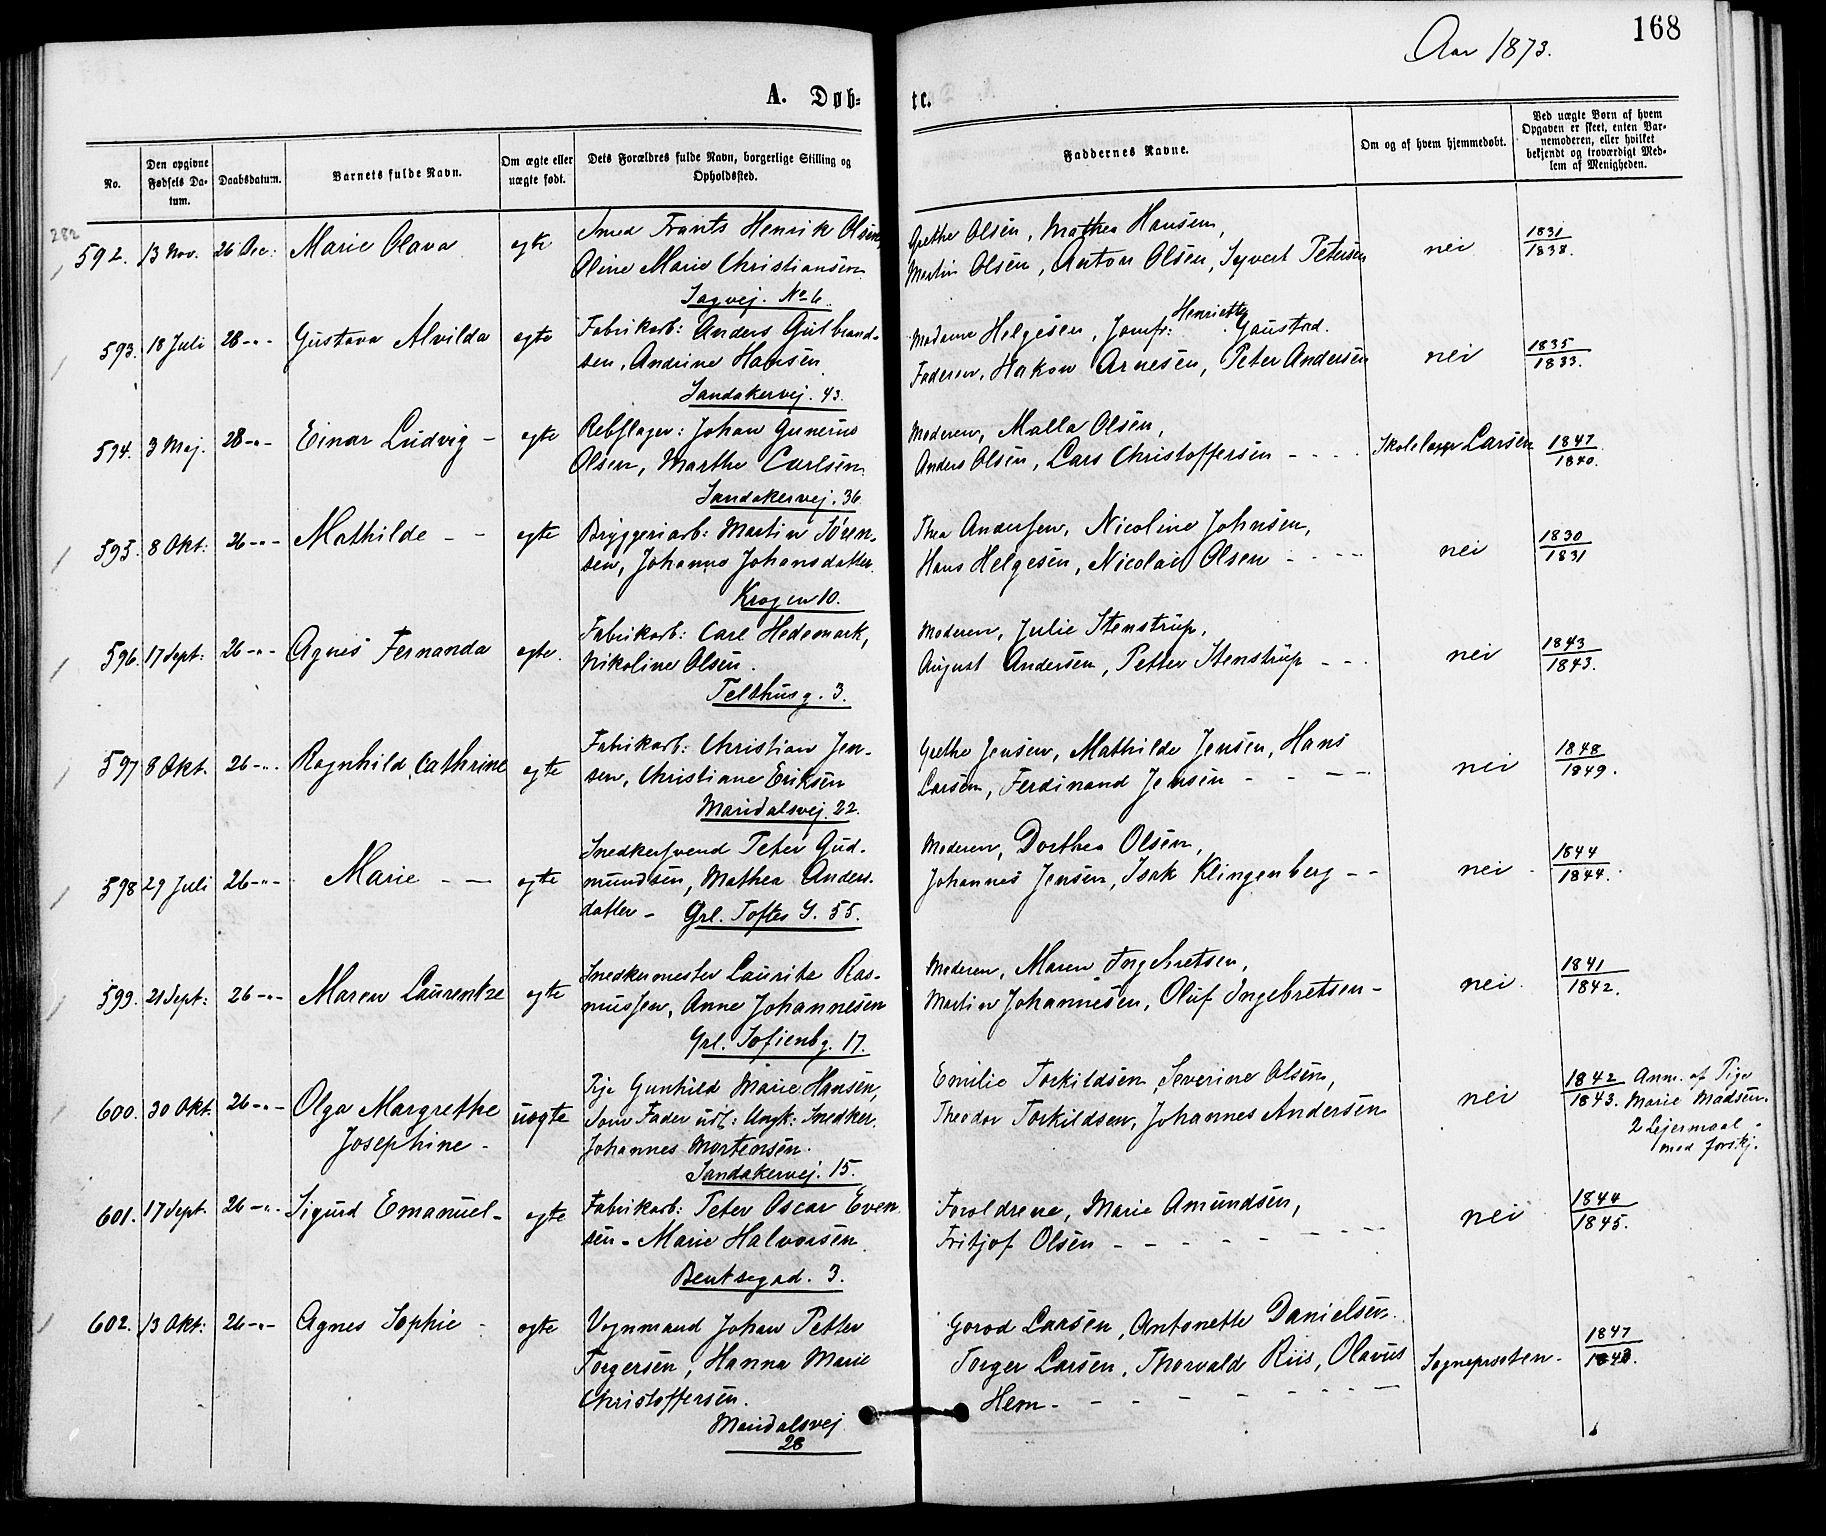 168
Aar 1873.
A. Døb-
te.
No.
Den opgivne Fødsels Da-tum.
Daabsdatum.
Barnets fulde Navn.
Om ægte eller uægte født.
Dets Forældres fulde Navn, borgerlige Stilling og Opholdssted.
Faddernes Navne.
Om og af hvem hjemmedøbt.
Ved uægte Børn af hvem Opgaven er skeet, enten Bar-nemoderen, eller hvilket bekjendt og troværdigt Med-lem af Menigheden.
282
592. 13 Nov. 26 Dec: Marie Olava egte Smed Frants Henrik Olsen
Oline Marie Christiansen
Sagvej. No 6.
Grethe Olsen, Mathea Hansen,
Martin Olsen, Anton Olsen, Syvert Petersen nei 1831
1838.
593. 18 Juli 28-"- Gustava Alvilda egte Fabrikarb: Anders Gulbrand-
sen, Andrine Hansen
Sandakervej. 43.
Madame Helgesen, Jomfr: Henriette Gaustad.
Faderen, Hakon Arnesen, Peter Andersen nei 1835
1833.
594. 3 Maj. 28-"- Einar Ludvig - egte Rebslager: Johan Gunerius
Olsen, Marthe Carlsen
Sandakervej. 36.
Moderen, Malla Olsen,
Anders Olsen, Lars Christoffersen - - - - Larsen 1847
1840.
595. 8 Okt: 26-"- Mathilde - - egte Bryggeriarb: Martin Sören-
sen, Johanne Johansdatter
Krogen 10.
Thea Andersen, Nicoline Johnsen,
Hans Helgesen, Nicolai Olsen - - - - nei 1830
1831
596. 17 Sept: 26-"- Agnes Fernanda egte. Fabrikarb: Carl Hedemark,
Nikoline Olsen.
Telthusg. 3.
Moderen, Julie Stenstrup,
August Andersen, Petter Stenstrup - - . nei 1843
1843.
597 8 Okt. 26-"- Ragnhild Cathrine egte Fabrikarb: Christian Jen-
sen, Christiane Eriksen
Maridalsvej. 22.
Grethe Jensen, Mathilde Jensen, Hans
Larsen, Ferdinand Jensen - - - - nei 1848
1849.
598 29 Juli 26-"- Marie - - egte Snedkersvend Peter Gud-
mundsen, Mathea Anders-
datter - Grl. Toftes G. 55.
Moderen, Dorthea Olsen,
Johannes Jensen, Isak Klingenberg - - nei 1844
1844.
599. 21 Sept: 26-"- Maren Laurentze egte Snedkermester Lauritz Ras-
mussen, Anne Johannesen
Grl. Sofienbg. 17.
Moderen, Maren Ingebretsen,
Martin Johannesen, Oluf Ingebretsen - nei. 1841
1842.
600. 30 Okt. 26-"- Olga Margrethe
Josephine - uegte Pige Gunhild Marie Hansen,
som Fader udl: Ungk: Snedker.
Johannes Mortensen.
Sandakervej. 15.
Emilie Torkildsen, Severine Olsen,
Theodor Torkildsen, Johannes Andersen nei 1842
1843.
Anm. af Pige
Marie Madsen.
2 Lejermaal
med forskj.
601. 17 Sept. 26-"- Sigurd Emanuel - egte Fabrikarb: Peter Oscar Even
sen - Marie Halvorsen
Bentsegad. 3.
Foroldrene, Marie Amundsen,
Fritjof Olsen - - - - - - - nei 1844
1845.
602. 13 Okt: 26-"- Agnes Sophie - egte Vognmand Johan Petter
Torgersen, Hanna Marie
Christoffersen.
Maridalsvej
28
Larsen, Antonette Danielsen
Torger Larsen, Thorvald Riis, Olavus
Hem - - - - - - - Sogneprosten - 1847